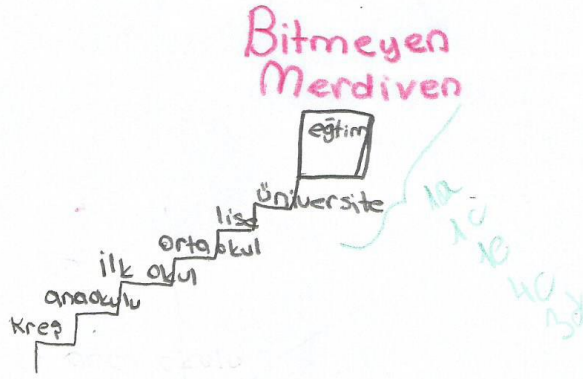 Bitmeyen
Merdiven
eğtim
üniversite
lise
orta okul
ilk okul
anaokulu
kreş
1a
1c
1e
4c
3d